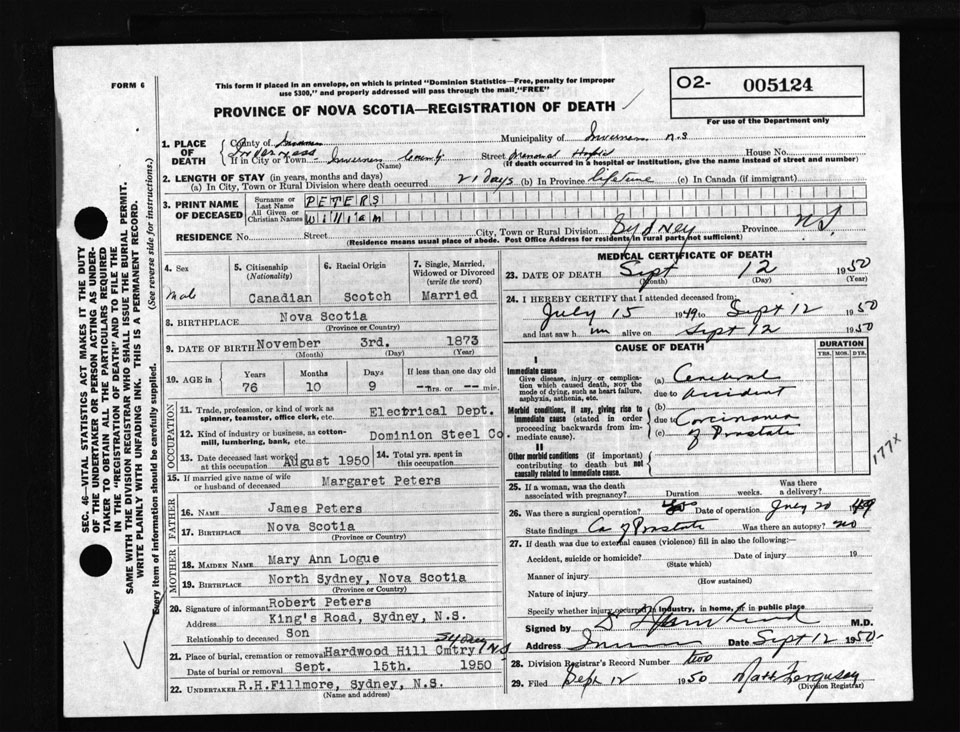 FORM 6
This form if placed in an envelope, on which is printed "Dominion Statistics—Free, penalty for improper
use $300," and properly addressed will pass through the mail "FREE"
O2- 005124
For use of the Department only
PROVINCE OF NOVA SCOTIA—REGISTRATION OF DEATH
1. PLACE OF DEATH
County of Inverness
Municipality of Inverness N.S
If in City or Town - Inverness County (Name) Street Memorial Hospital House No.
(If death occurred in a hospital or institution, give the name instead of street and number)
2. LENGTH OF STAY (in years, months and days)
(a) In City, Town or Rural Division where death occurred 21 days (b) In Province lifetime (c) In Canada (if immigrant)
3. PRINT NAME OF DECEASED
Surname or Last Name PETERS
All Given or Christian Names William
RESIDENCE No. Street City, Town or Rural Division Sydney Province N.S.
(Residence means usual place of abode. Post Office Address for residents in rural parts not sufficient)
4. Sex Male
5. Citizenship (Nationality) Canadian
6. Racial Origin Scotch
7. Single, Married, Widowed or Divorced (write the word) Married
8. BIRTHPLACE Nova Scotia
(Province or Country)
9. DATE OF BIRTH November 3rd. 1873
(Month) (Day) (Year)
10. AGE in Years 76 Months 10 Days 9 If less than one day old — hrs. or — min.
OCCUPATION
11. Trade, profession, or kind of work as spinner, teamster, office clerk, etc. Electrical Dept.
12. Kind of industry or business, as cotton-mill, lumbering, bank, etc. Dominion Steel Co.
13. Date deceased last worked at this occupation August 1950
14. Total yrs. spent in this occupation
15. If married give name of wife or husband of deceased Margaret Peters
FATHER
16. Name James Peters
17. BIRTHPLACE Nova Scotia
(Province or Country)
MOTHER
18. MAIDEN NAME Mary Ann Logue
19. BIRTHPLACE North Sydney, Nova Scotia
(Province or Country)
20. Signature of informant Robert Peters
Address King's Road, Sydney, N.S.
Relationship to deceased Son
21. Place of burial, cremation or removal Hardwood Hill Cmtry Sydney N.S
Date of burial or removal Sept. 15th. 1950
22. UNDERTAKER R.H.Fillmore, Sydney, N.S.
(Name and address)
MEDICAL CERTIFICATE OF DEATH
23. DATE OF DEATH Sept 12 1950
(Month) (Day) (Year)
24. I HEREBY CERTIFY that I attended deceased from:
July 15 1949 to Sept 12 1950
and last saw h im alive on Sept 12 1950
CAUSE OF DEATH
DURATION
YRS. MOS. DYS.
I
Immediate cause
Give disease, injury or complication which caused death, NOT the mode of dying, such as heart failure, asphyxia, asthenia, etc.
(a) Cerebral
due to accident
Morbid conditions, if any, giving rise to immediate cause (stated in order proceeding backwards from immediate cause).
(b)
due to Carcinoma
(c) of Prostate
II
Other morbid conditions (if important) contributing to death but not causally related to immediate cause.
177x
25. If a woman, was the death associated with pregnancy? Duration weeks. Was there a delivery?
26. Was there a surgical operation? yes Date of operation July 20 49
State findings Ca of Prostate Was there an autopsy? no
27. If death was due to external causes (violence) fill in also the following:
Accident, suicide or homicide? (State which) Date of injury 19
Manner of injury (How sustained)
Nature of injury
Specify whether injury occurred in industry, in home, or in public place
Signed by M.D.
Address Date Sept 12 1950
28. Division Registrar's Record Number two
29. Filed Sept 12 1950 Ferguson
(Division Registrar)
SEC. 46—VITAL STATISTICS ACT MAKES IT THE DUTY
OF THE UNDERTAKER OR PERSON ACTING AS UNDER-
TAKER TO OBTAIN ALL THE PARTICULARS REQUIRED
IN THE "REGISTRATION OF DEATH" AND TO FILE THE
SAME WITH THE DIVISION REGISTRAR WHO SHALL ISSUE THE BURIAL PERMIT.
WRITE PLAINLY WITH UNFADING INK. THIS IS A PERMANENT RECORD.
Every item of information should be carefully supplied. (See reverse side for instructions.)